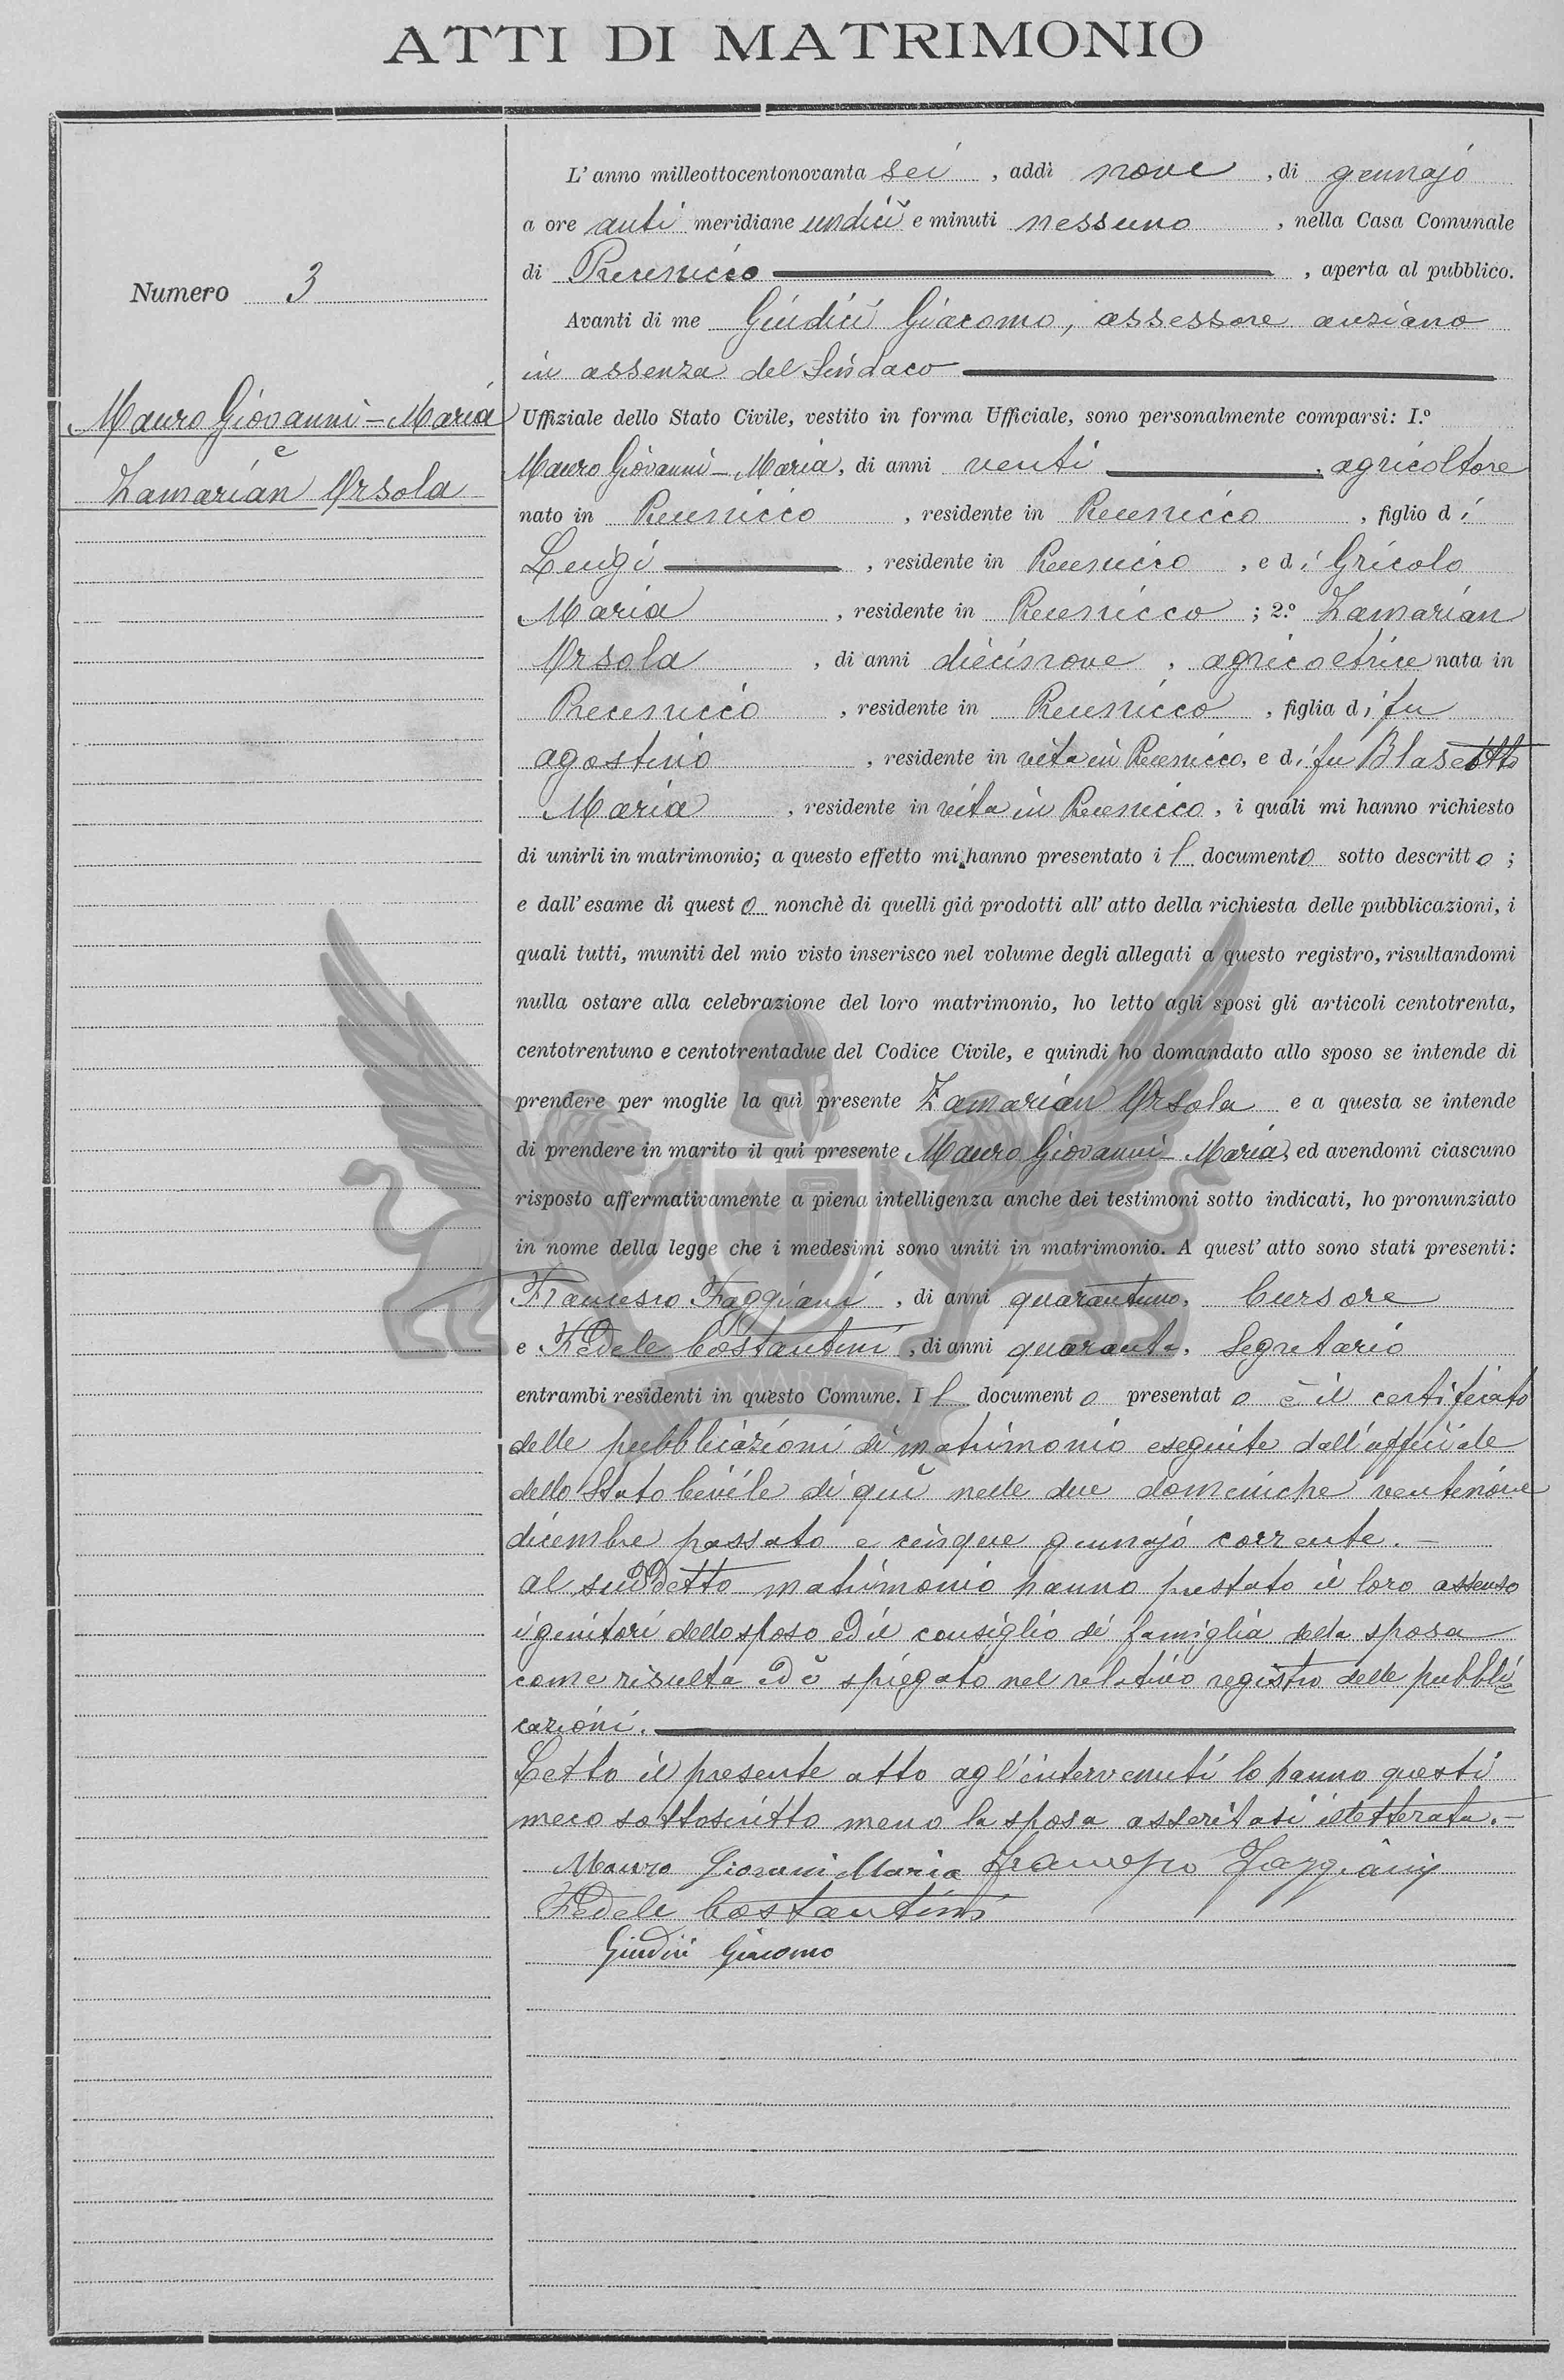 ATTI DI MATRIMONIO
Numero 3
Mauro Giovanni-Maria
e
Zamarian Orsola
L'anno milleottocentonovanta sei, addì nove, di gennajo
a ore anti meridiane undici e minuti nessuno, nella Casa Comunale
di Precenicco, aperta al pubblico.
Avanti di me Giudici Giacomo, assessore anziano
in assenza del Sindaco
Uffiziale dello Stato Civile, vestito in forma Ufficiale, sono personalmente comparsi: I.º
Mauro Giovanni-Maria, di anni venti, agricoltore
nato in Precenicco, residente in Precenicco, figlio di
Luigi, residente in Precenicco, e di Gricolo
Maria, residente in Precenicco; 2.º Zamarian
Orsola, di anni diecinove, agricoltrice nata in
Precenicco, residente in Precenicco, figlia di fu
agostino, residente in vita in Precenicco, e di fu Blaseotto
Maria, residente in vita in Precenicco, i quali mi hanno richiesto
di unirli in matrimonio; a questo effetto mi hanno presentato il documento sotto descritto;
e dall'esame di questo nonchè di quelli già prodotti all'atto della richiesta delle pubblicazioni, i
quali tutti, muniti del mio visto inserisco nel volume degli allegati a questo registro, risultandomi
nulla ostare alla celebrazione del loro matrimonio, ho letto agli sposi gli articoli centotrenta,
centotrentuno e centotrentadue del Codice Civile, e quindi ho domandato allo sposo se intende di
prendere per moglie la quì presente Zamarian Orsola e a questa se intende
di prendere in marito il quì presente Mauro Giovanni-Maria, ed avendomi ciascuno
risposto affermativamente a piena intelligenza anche dei testimoni sotto indicati, ho pronunziato
in nome della legge che i medesimi sono uniti in matrimonio. A quest'atto sono stati presenti:
Francesco Faggiani, di anni quarantuno, Cursore
e Fedele Costantini, di anni quaranta, Segretario
entrambi residenti in questo Comune. Il documento presentato è il certificato
delle pubblicazioni di matrimonio eseguite dall'ufficiale
dello Stato Civile di quì nelle due domeniche ventinove
dicembre passato e cinque gennajo corrente. —
al suddetto matrimonio hanno prestato il loro assenso
i genitori dello sposo ed il consiglio di famiglia della sposa
come risulta ed è spiegato nel relativo registro delle pubbli-
cazioni.
Letto il presente atto agl'intervenuti lo hanno questi
meco sottoscritto meno la sposa asseritasi illetterata. —
Mauro Giovani Maria Francesco Faggiani
Fedele Costantini
Giudici Giacomo
ZAMARIAN